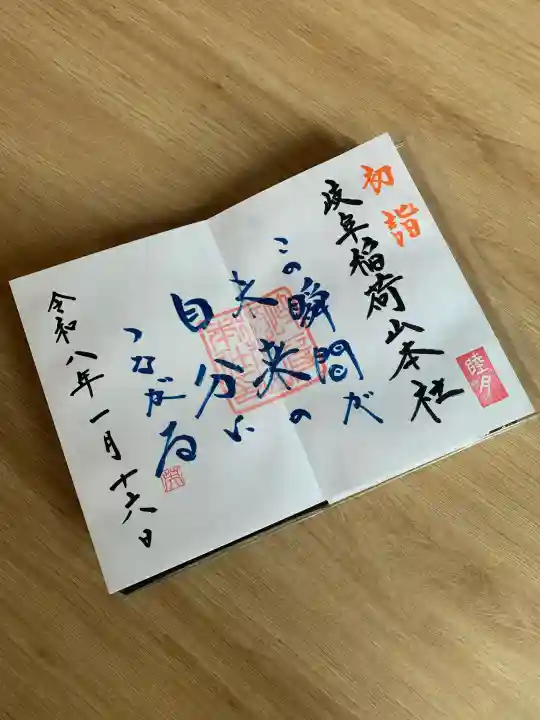 初詣
岐阜稲荷山本社
睦月
この瞬間が
未来の
自分に
つながる
令和八年一月十六日